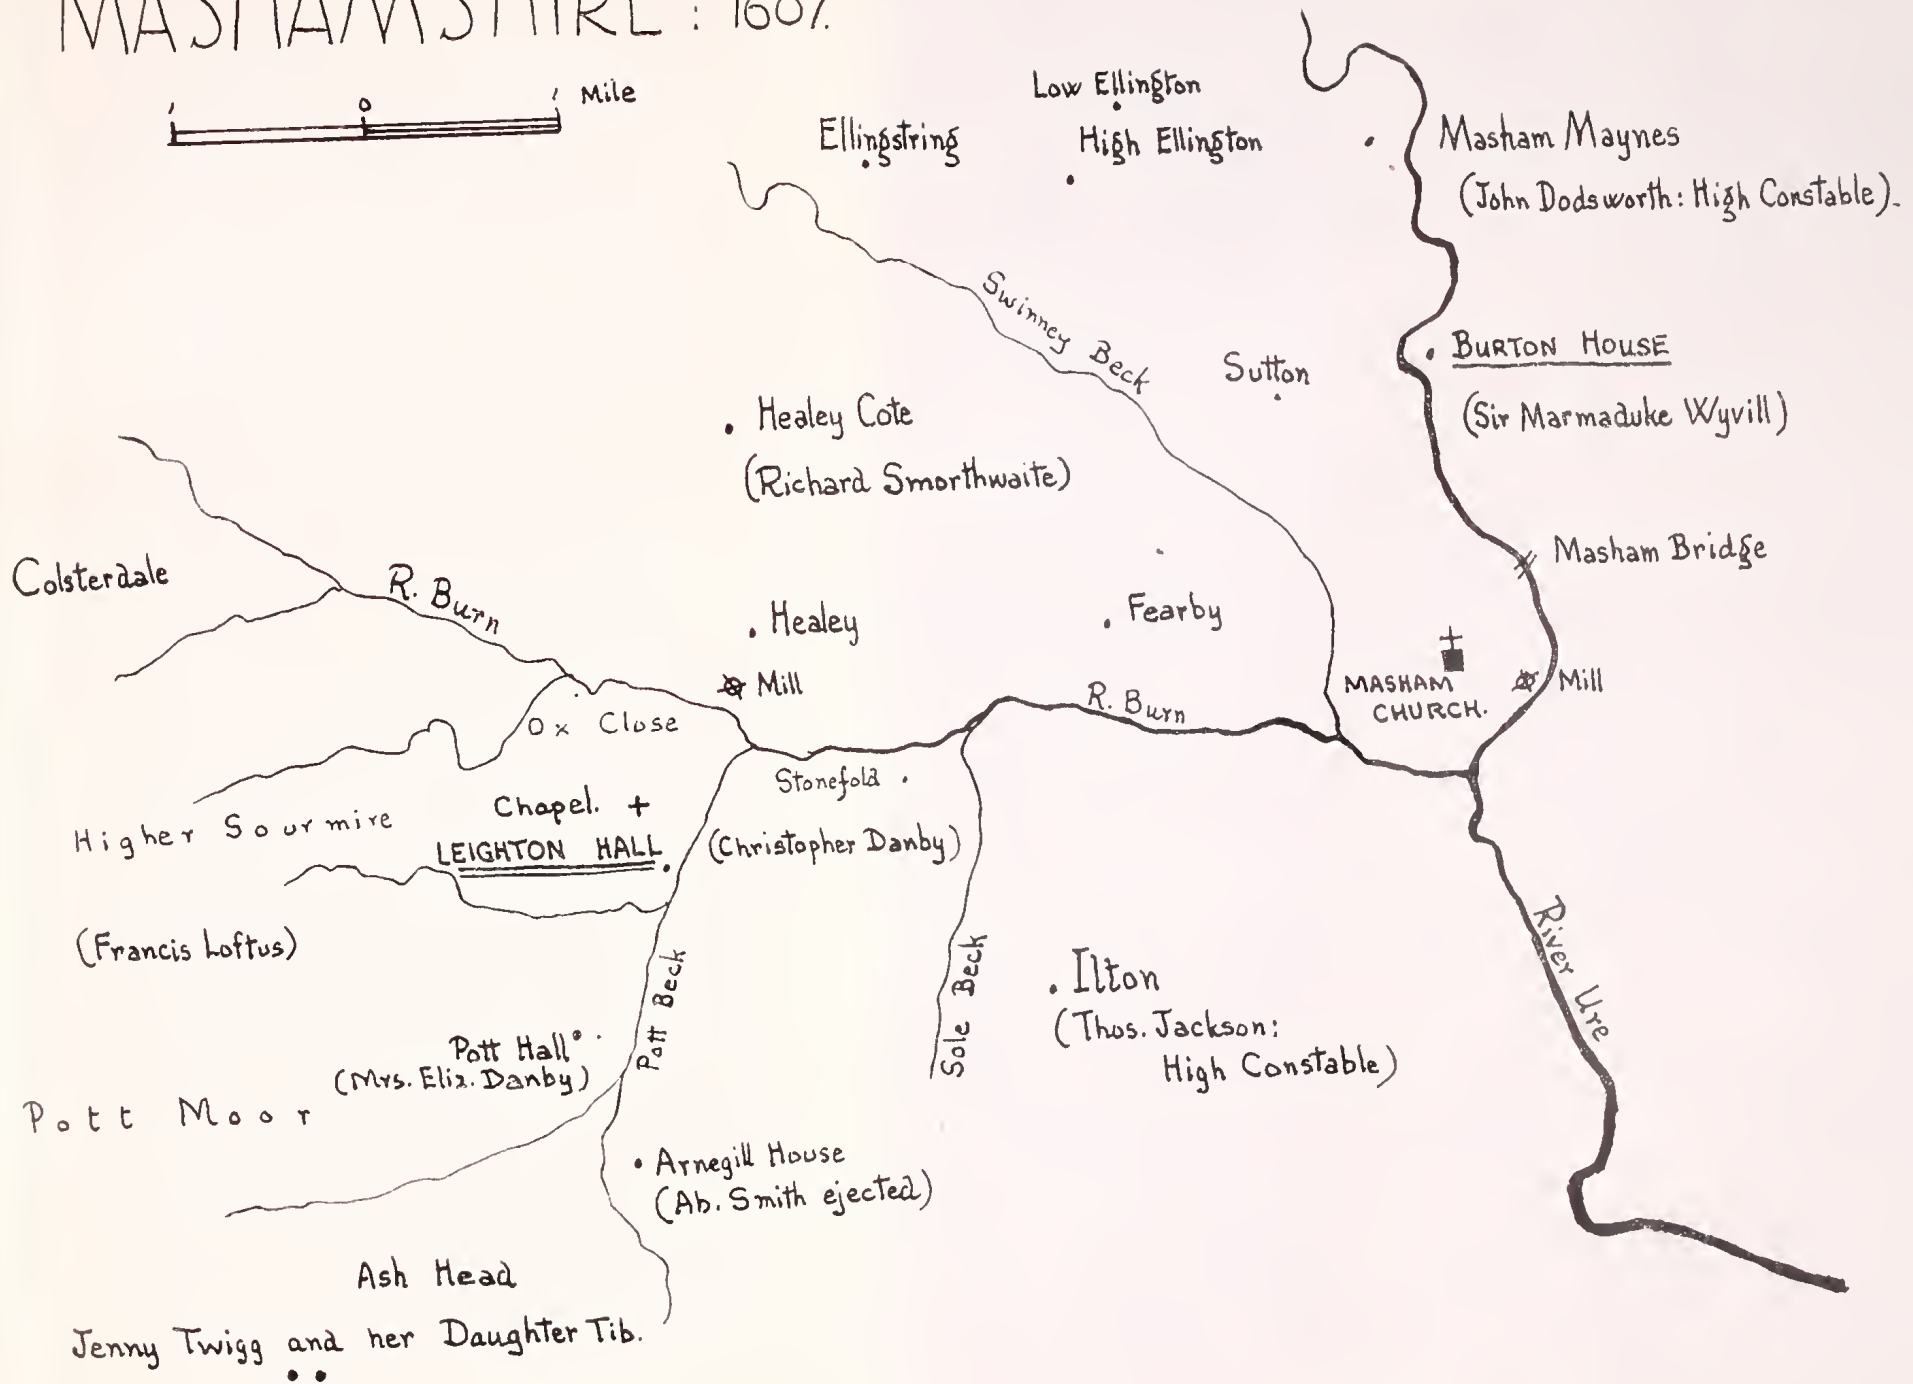 MASHAMSHIRE : 1607.
1 0 1 Mile
Low Ellington
Ellingstring
High Ellington
Masham Maynes
(John Dodsworth: High Constable).
Swinney Beck
Sutton
BURTON HOUSE
(Sir Marmaduke Wyvill)
Healey Cote
(Richard Smorthwaite)
Masham Bridge
Colsterdale
R. Burn
Healey
Fearby
Mill
MASHAM
CHURCH.
Mill
R. Burn
Ox Close
Stonefold
(Christopher Danby)
Higher Sourmire
Chapel.
LEIGHTON HALL
(Francis Loftus)
Pott Beck
Sole Beck
Ilton
(Thos. Jackson:
High Constable)
River Ure
Pott Hall
(Mrs. Eliz. Danby)
Pott Moor
Arnegill House
(Ab. Smith ejected)
Ash Head
Jenny Twigg and her Daughter Tib.